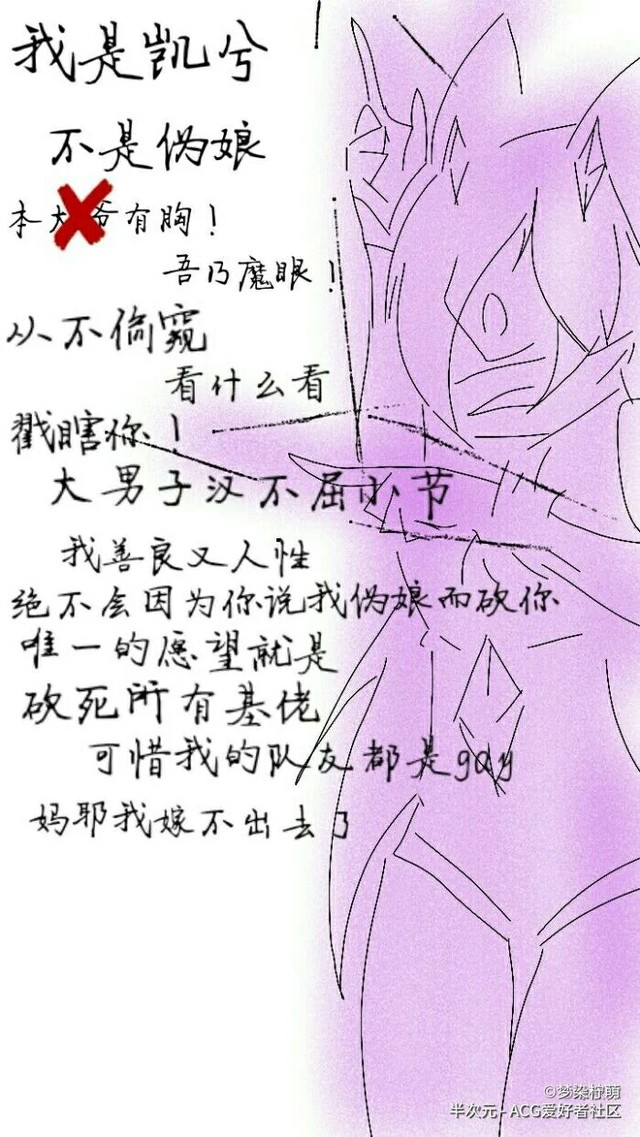 我是凯兮
不是伪娘
本大爷有胸！
吾乃魔眼！
从不偷窥
看什么看
戳瞎你！
大男子汉不屈小节
我善良又人性
绝不会因为你说我伪娘而砍你
唯一的愿望就是
砍死所有基佬
可惜我的队友都是gay
妈耶我嫁不出去了
©梦染柠萌
半次元 - ACG爱好者社区